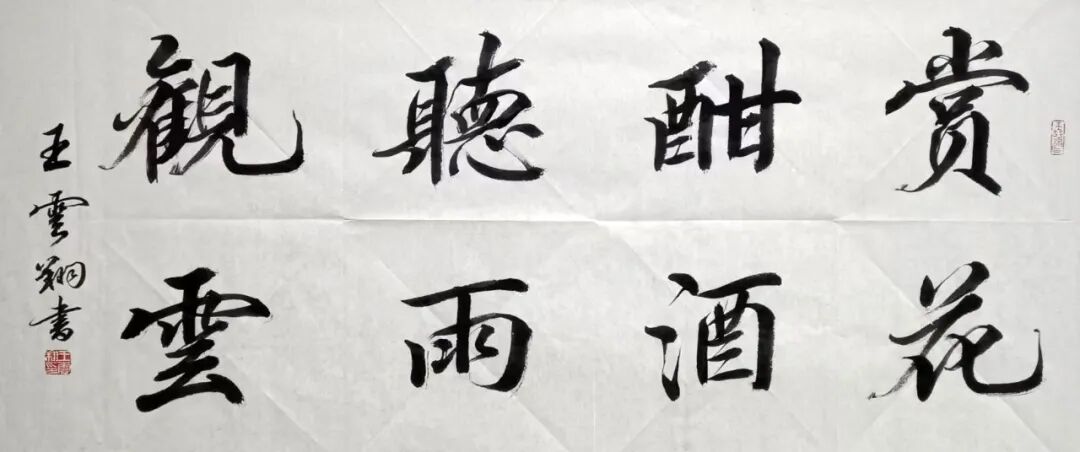 赏花
酣酒
聽雨
観雲
王雲翔書